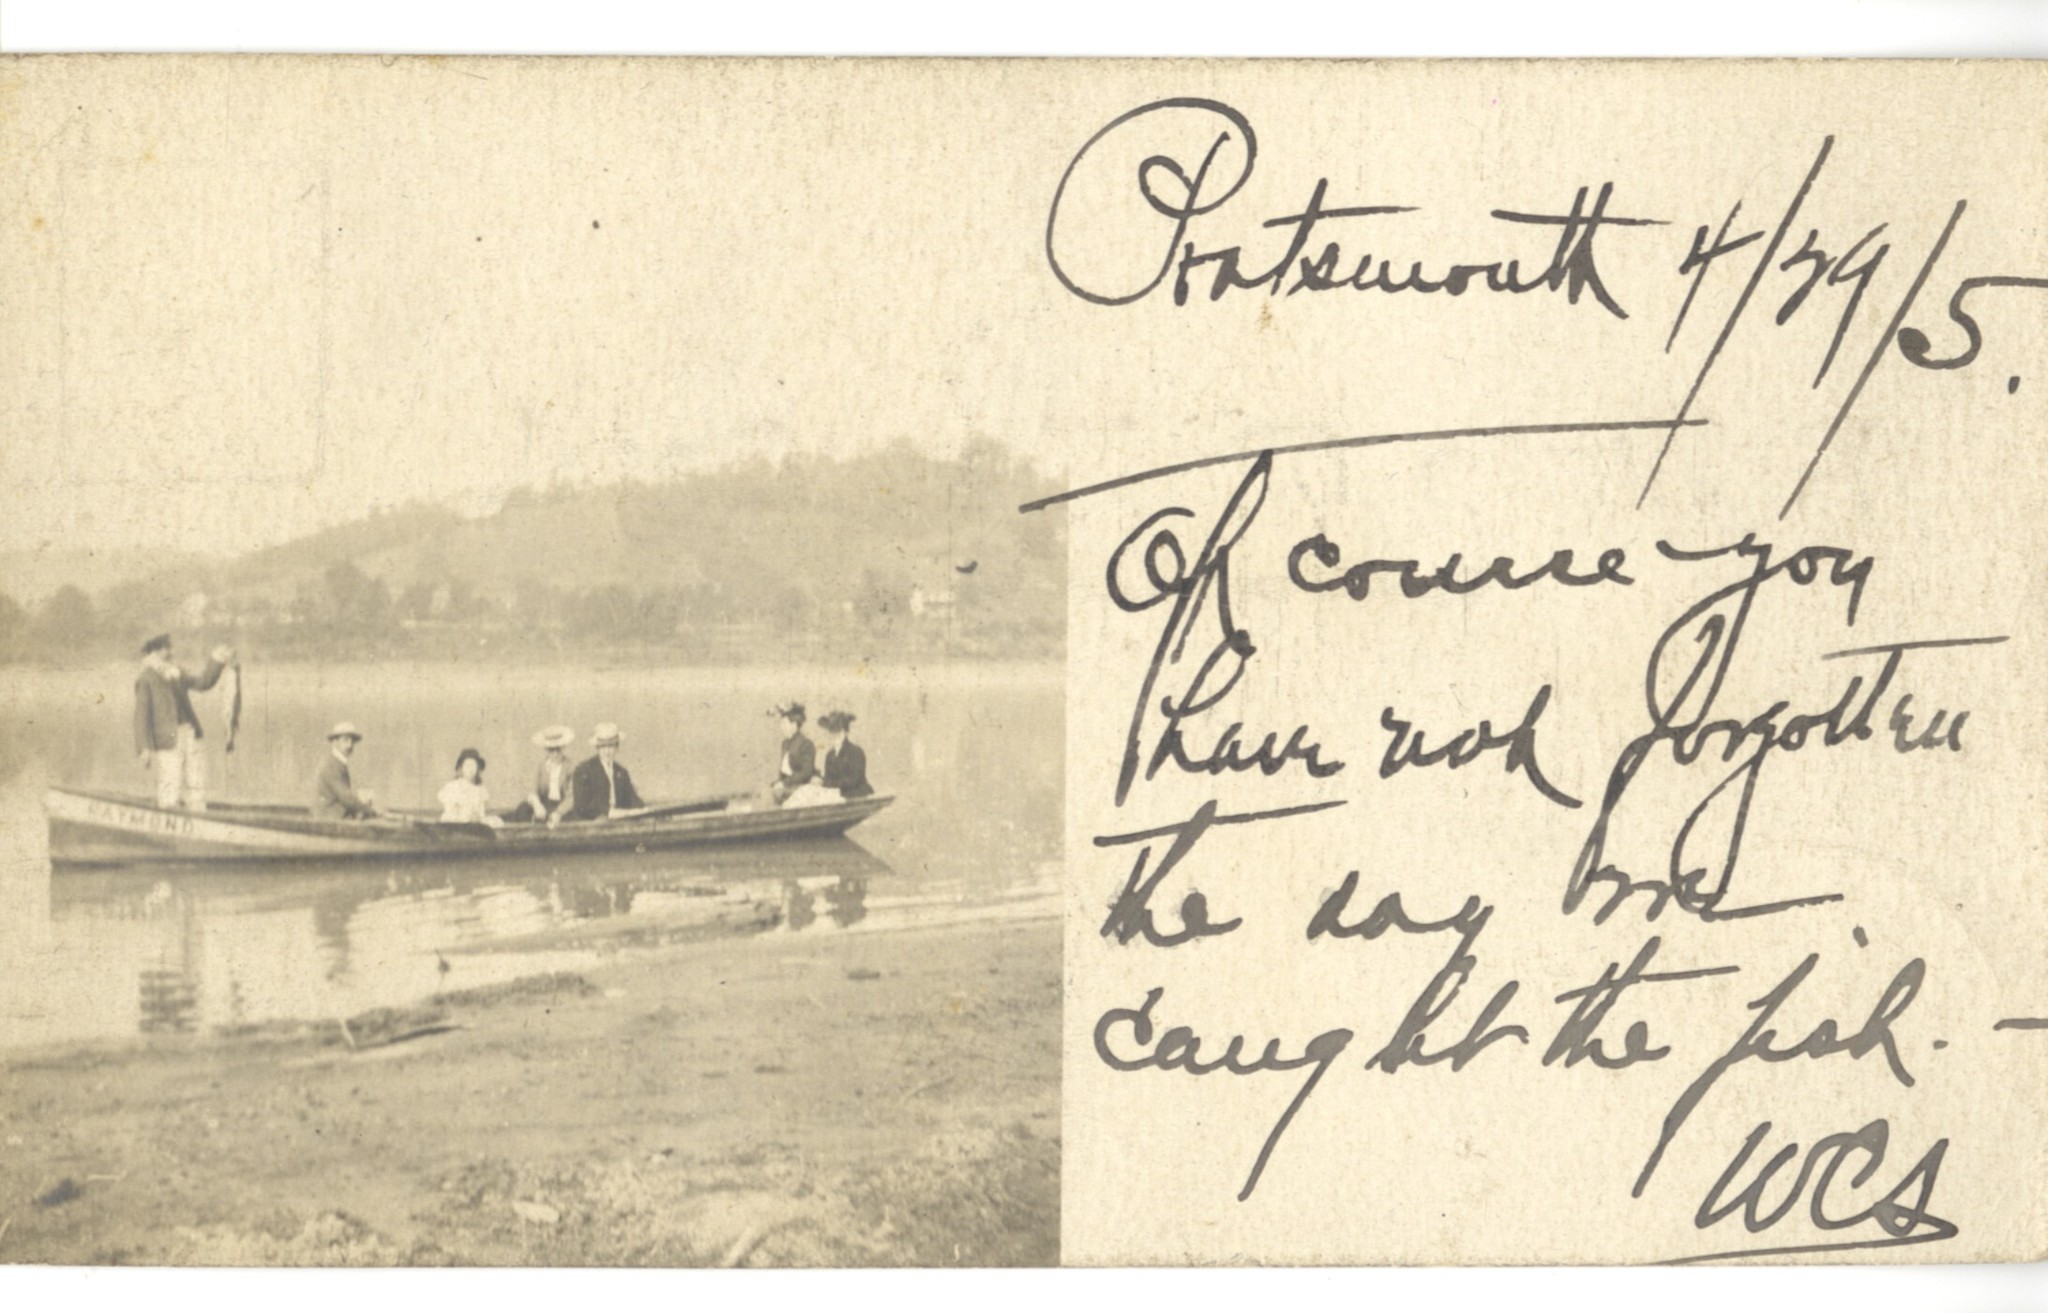 Portsmouth 4/29/5.
Of course you
have not forgotten
the day we
caught the fish. —
WCS
RAYMOND